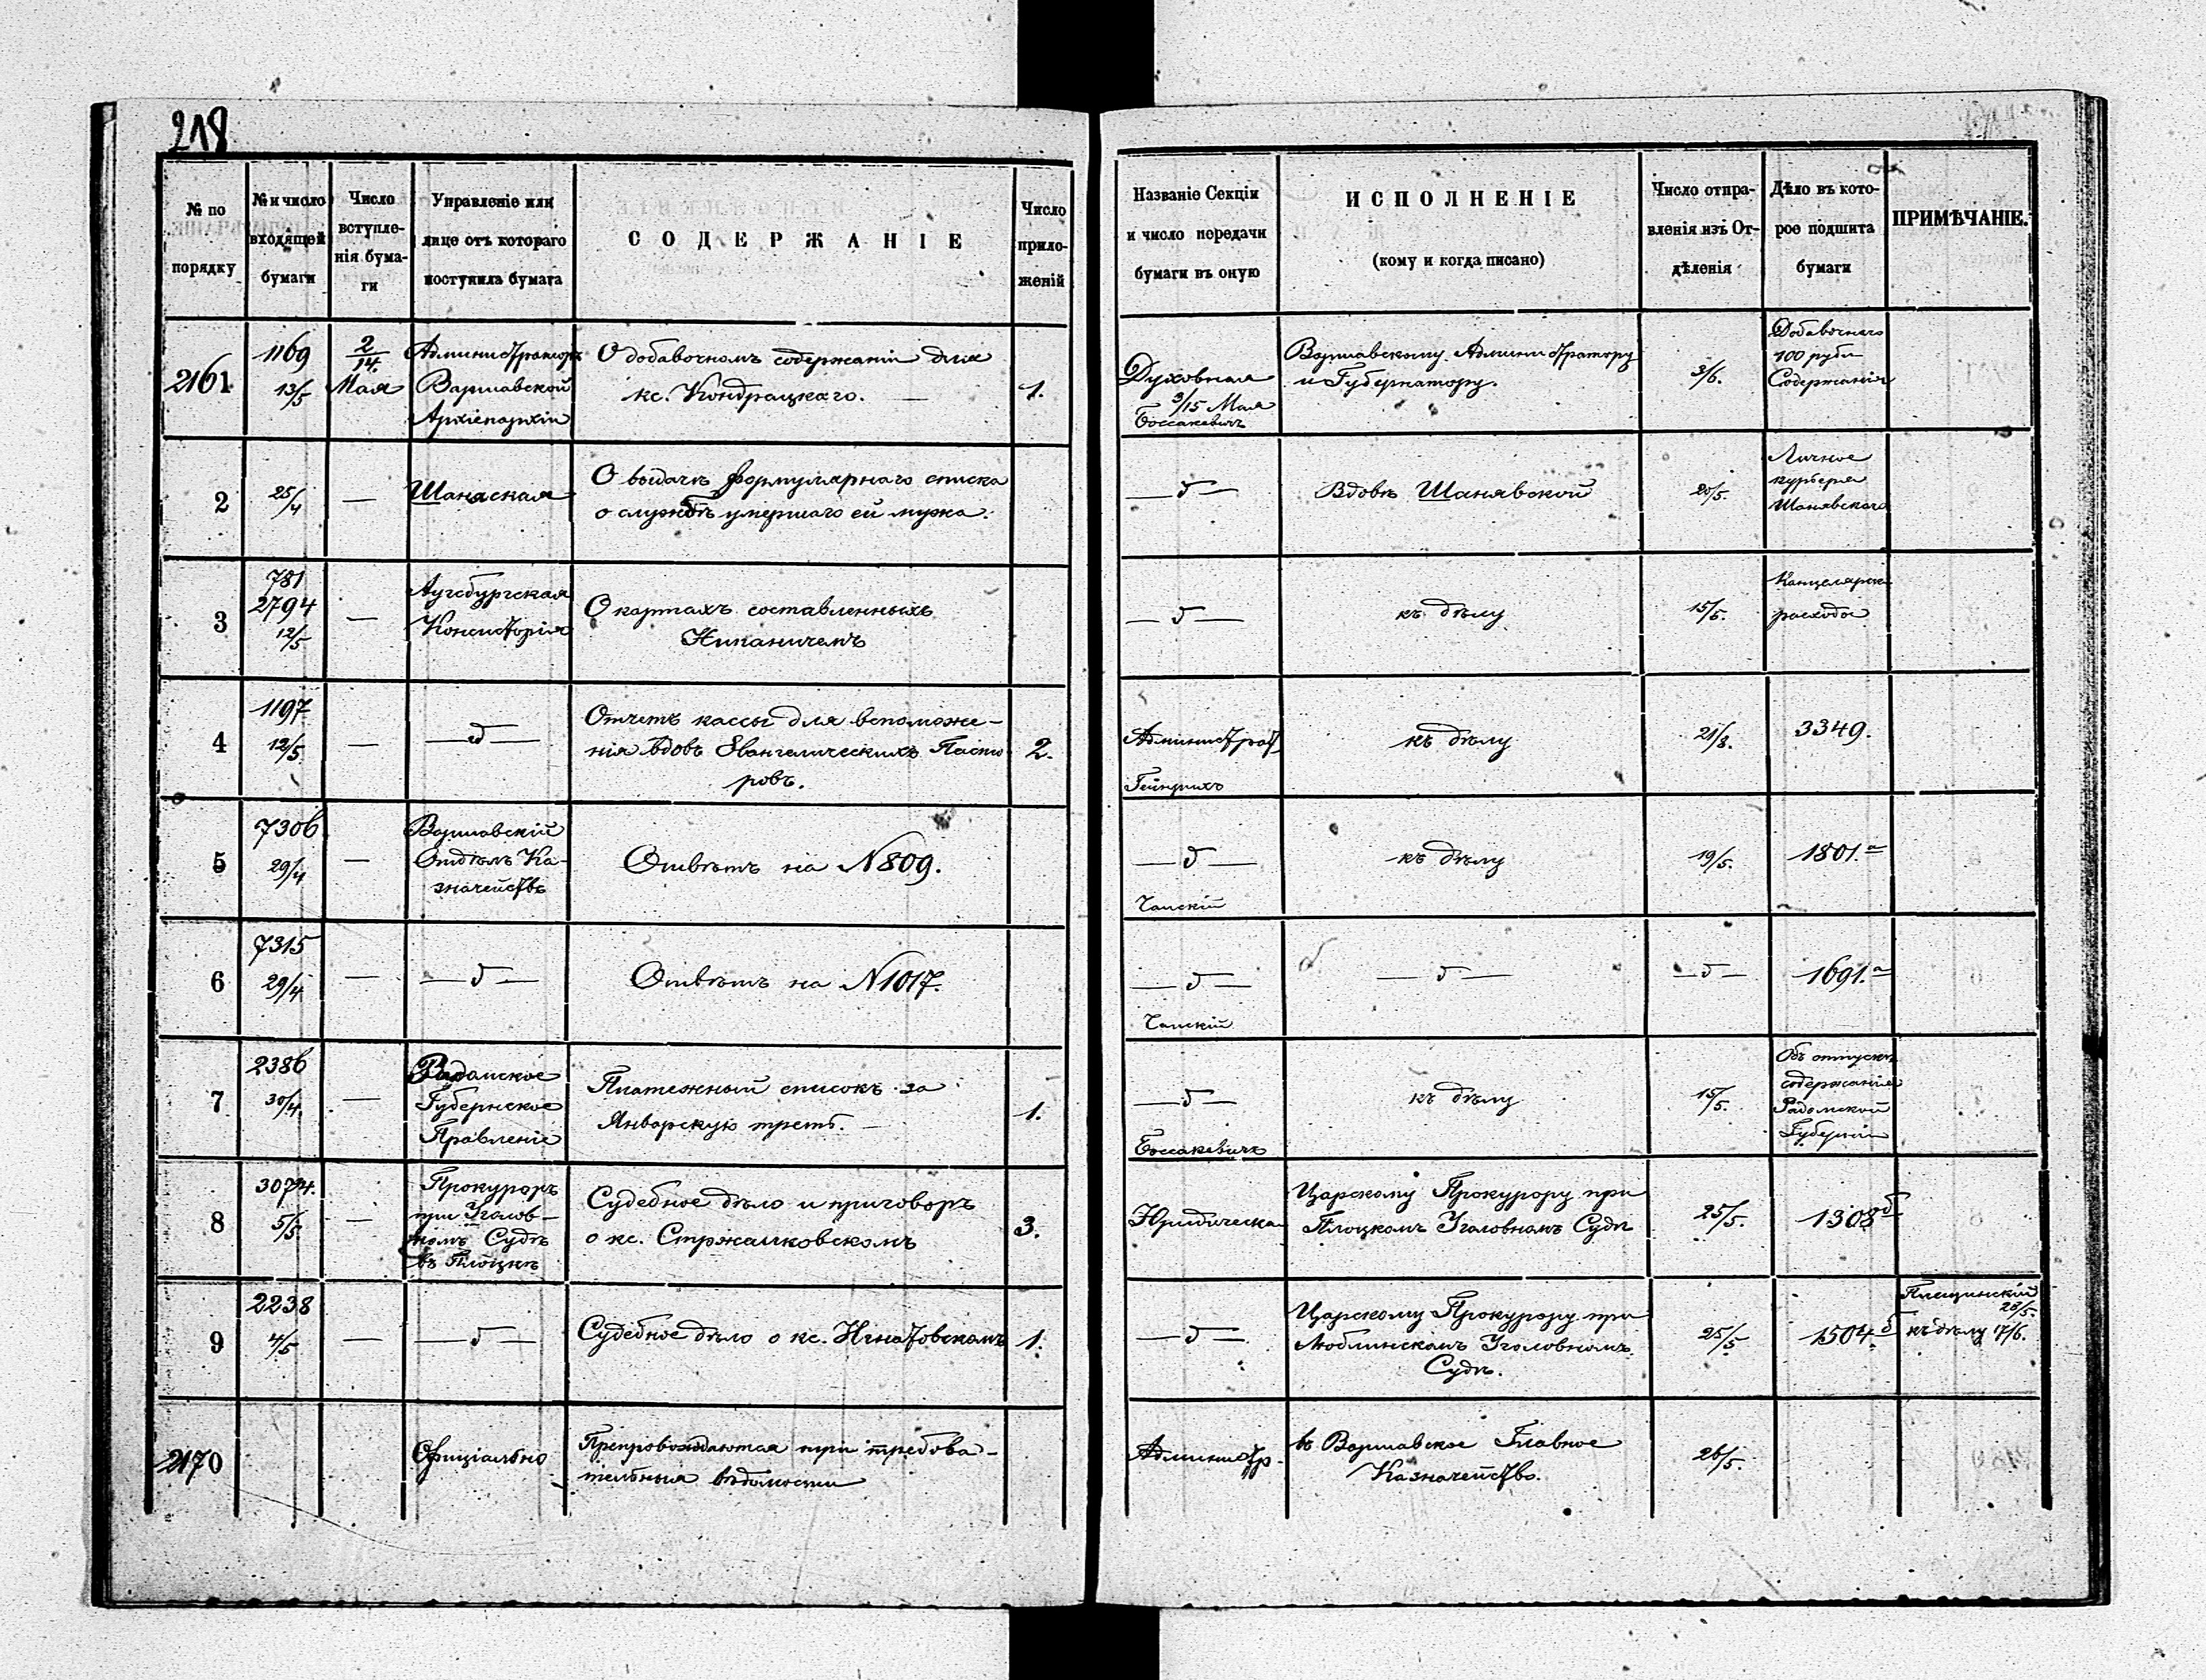 218
№ по порядку
№ и число входящей бумаги
Число вступленія бумаги
Управленіе или лице отъ котораго поступила бумага
СОДЕРЖАНІЕ
Число приложеній
Названіе Секціи и число передачи бумаги въ оную
ИСПОЛНЕНІЕ
(кому и когда писано)
Число отправленія изъ Отдѣленія
Дѣло въ которое подшита бумаги
ПРИМѢЧАНІЕ.
2161
1169
13/5
2/14
Мая
Администраторъ
Варшавской
Архіепархіи
О добавочномъ содержаніи для
кс. Кондрацкаго. —
1.
Духовная
3/15 Мая
Боссакевичъ
Варшавскому Администратору
и Губернатору.
3/6.
Добавочнаго
100 рубл
Содержанія
2
25/4
—
Шанаская
О выдачѣ формулярнаго списка
о службѣ умершаго ей мужа.
— д —
Вдовѣ Шанявской
20/5.
Личное
Шанявскаго
3
781
2794
12/5
—
Аугсбургская
Консисторія
О картахъ составленныхъ
— д —
къ дѣлу
15/5.
Канцелярск.
расходы
4
1197
12/5
—
— д —
Отчетъ кассы для вспоможе-
нія вдовъ Евангелическихъ Пасто-
ровъ.
2.
Администрат.
Гейнрихъ
къ дѣлу
21/8.
3349.
5
7306
29/4
—
Варшавскій
Отдѣлъ Ка-
значействъ
Отвѣтъ на N809.
— д —
Чапскій
къ дѣлу
19/5.
1801.а
6
7315
29/4
—
— д —
Отвѣтъ на N1017.
— д —
Чапскій
— д —
— д —
1691.а
7
2386
30/4.
—
Радомское
Губернское
Правленіе
Платежный списокъ за
Январскую треть. —
1.
— д —
Боссакевичъ
къ дѣлу
15/5.
Объ отпускѣ
содержанія
Радомской
Губерніи
8
3074.
5/5.
—
Прокуроръ
при Уголов-
номъ Судѣ
въ Плоцкѣ
Судебное дѣло и приговоръ
о кс. Стржалковскомъ
3.
Юридическа
Царскому Прокурору при
Плоцкомъ Уголовномъ Судѣ
25/5.
1308б
9
2238
4/5
—
— д —
Судебное дѣло о кс. Игнатовскомъ
1.
— д —
Царскому Прокурору при
Люблинскомъ Уголовномъ
Судѣ.
25/5
1504б
25/5.
къ дѣлу 17/6.
2170
Офиціально
Препровождаются при требова-
тельныя вѣдомости
Администр.
въ Варшавское Главное
Казначейство.
26/5.